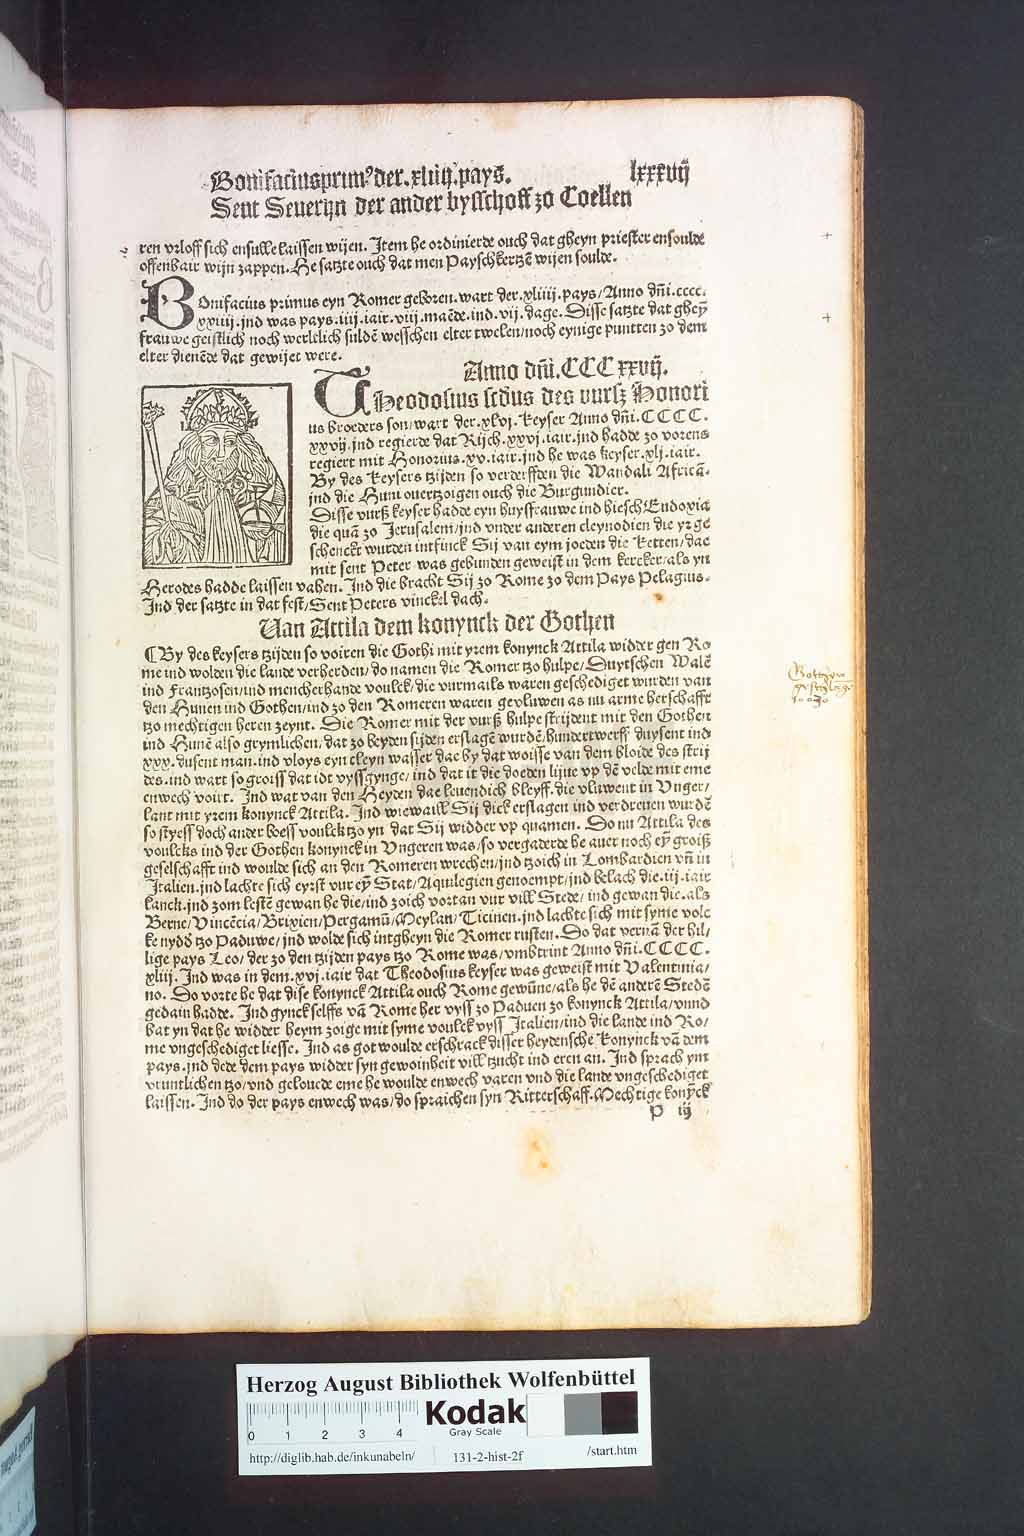 Bonifacius prim⁹ der .xliiij. pays.
lxxxvij
Sent Seuerijn der ander bysschoff zo Coellen
ren vrloff sich ensulle laissen wijen. Item he ordinierde ouch dat gheyn priester ensoulde
offenbair wijn zappen. He satzte ouch dat men Payschkertzē wijen soulde.
BOnifacius primus eyn Romer geboren. wart der .xliiij. pays/ Anno dn̄i.cccc.
xxiiij. jnd was pays .iij. iair. viij. maēde. ind. vij. dage. Disse satzte dat gheyn̄
frauwe geistlich noch werltlich suldē wesschen elter twelen/ noch eynige puntten zo dem
elter dienēde dat gewijet were.
Anno dn̄i.CCCCxxvij.
THeodosius scd̄us des vursz Honori
us broeders son/ wart der .xlvj. keyser Anno dn̄i.CCCC.
xxvij. jnd regierde dat Rijch .xxvj. iair. jnd hadde zo vorens
regiert mit Honorius .xv. iair. jnd he was keyser .xlj. iair.
By des keysers tzijden so verderfften die Wandali Africā.
jnd die Huni ouertzoigen ouch die Burgundier.
Disse vurß keyser hadde eyn huysfrauwe ind hiesch Eudoxia
die quā zo Jerusalem/ jnd vnder anderen cleynodien die yr ge
schenckt wurden intfinck Sij van eym joeden die ketten/ dae
mit sent Peter was gebunden geweist in dem kercker/ als yn
Herodes hadde laissen vahen. Ind die bracht Sij zo Rome zo dem Pays Pelagius.
Ind der satzte in dat fest/ Sent Peters vinckel dach.
Van Attila dem konynck der Gothen
¶By des keysers tzijden so voiren die Gothi mit yrem konynck Attila widder gen Ro
me ind wolden die lande verherden/ do namen die Romer tzo hulpe/ Duytschen Walē
ind Frantzosen/ ind mencherhande voulck/ die vurmails waren geschediget wurden van
den Hunen ind Gothen/ ind zo den Romeren waren gevluwen as an arme herschafft
tzo mechtigen heren zeynt. Die Romer mit der vurß hulpe strijdent mit den Gothen
ind Hunē also grymlichen/ dat zo beyden sijden erslagē wurdē/ hundertwerff duysent ind
xxx. dusent man. ind vloys eyn cleyn wasser dae by dat woisse van dem bloide des strij
des. ind wart so groiss dat idt vyssgynge/ ind dat it die doeden lijue vp dē velde mit eme
enwech voirt. Ind wat van den Heyden dae leuendich bleyff. die vluwent in Vnger/
lant mit yrem konynck Attila. Ind wiewaill Sij dick erslagen ind verdreuen wurdē
so styess doch ander boess voulck tzo yn dat Sij widder vp quamen. Do nu Attila des
voulcks ind der Gothen konynck in Vngeren was/ so vergaderde he auer noch eyn̄ groiß
geselschafft ind woulde sich an den Romeren wrechen/ jnd tzoich in Lombardien vn̄ in
Italien. jnd lachte sich eyrst vur eyn̄ Stat/ Aquilegien genoempt/ jnd belach die .iij. iair
lanck. jnd zom lestē gewan he die/ ind zoich vortan vur vill Stede/ ind gewan die. als
Berne/ Vincēcia/ Brixien/ Pergamū/ Meylan/ Ticinen. jnd lachte sich mit syme volc
ke nydō tzo Paduwe/ jnd wolde sich intgheyn die Romer rusten. Do dat vernā der hil/
lige pays Leo/ der zo den tzijden pays tzo Rome was/ vmbtrint Anno dn̄i.CCCC.
xliij. Ind was in dem .xvj. iair dat Theodosius keyser was geweist mit Valentinia/
no. Do vorte he dat dise konynck Attila ouch Rome gewūne/ als he dē anderē Stedē
gedain hadde. Ind gynck selffs vā Rome her vyss zo Paduen zo konynck Attila/ vnnd
bat yn dat he widder heym zoige mit syme voulck vyss Italien/ ind die lande ind Ro/
me vngeschediget liesse. Ind as got woulde erschrack disser heydensche konynck vā dem
pays. jnd dede dem pays widder syn gewoinheit vill tzucht ind eren an. Ind sprach ym
vruntlichen tzo/ vnd geloude eme he woulde enwech varen vnd die lande vngeschediget
laissen. Ind do der pays enwech was/ do spraichen syn Ritterschaff. Mechtige konyck
P iij
Herzog August Bibliothek Wolfenbüttel
0 1 2 3 4
Kodak
Gray Scale
http://diglib.hab.de/inkunabeln/
131-2-hist-2f
/start.htm